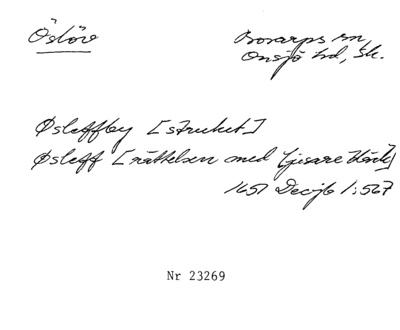 Öslöv
Borarps sn,
Onsjö hd, Sk.
Øsleffby [struket]
Øsleff [rättelsen med ljusare bläck]
1651 Decjb 1:567
Nr 23269